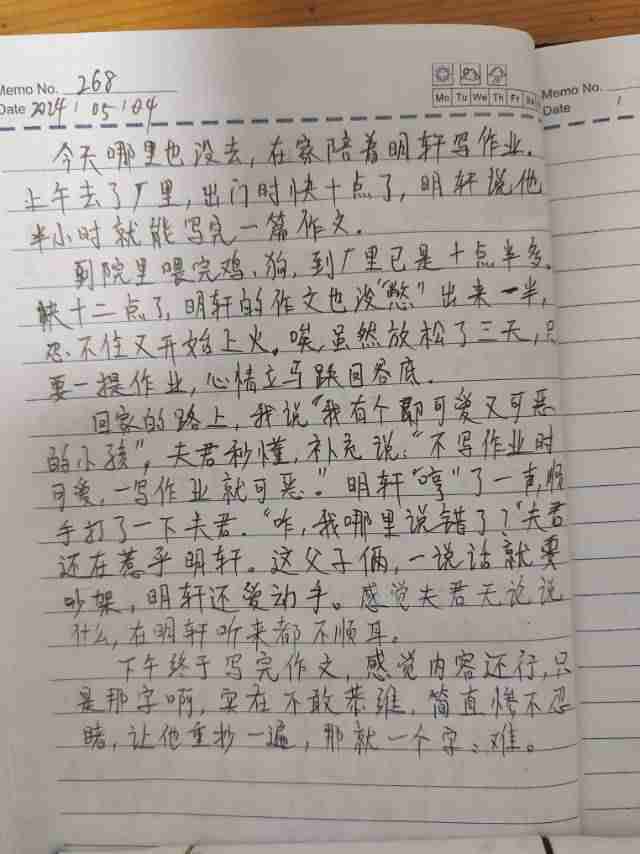 Memo No. 268
Date 2024 / 05 / 04
Mo Tu We Th Fr Sa
Memo No.
Date /
今天哪里也没去，在家陪着明轩写作业。
上午去了厂里，出门时快十点了，明轩说他
半小时就能写完一篇作文。
到院里喂完鸡、狗，到厂里已是十点半多。
快十二点了，明轩的作文也没“憋”出来一半，
忍不住又开始上火。唉，虽然放松了三天，只
要一提作业，心情立马跌回谷底。
回家的路上，我说“我有个那可爱又可恶
的小孩”，夫君秒懂，补充说：“不写作业时
可爱，一写作业就可恶。”明轩“哼”了一声，顺
手打了一下夫君。“咋，我哪里说错了？”夫君
还在惹乎明轩。这父子俩，一说话就要
吵架，明轩还爱动手。感觉夫君无论说
什么，在明轩听来都不顺耳。
下午终于写完作文，感觉内容还行，只
是那字啊，实在不敢恭维，简直惨不忍
睹，让他重抄一遍，那就一个字：难。